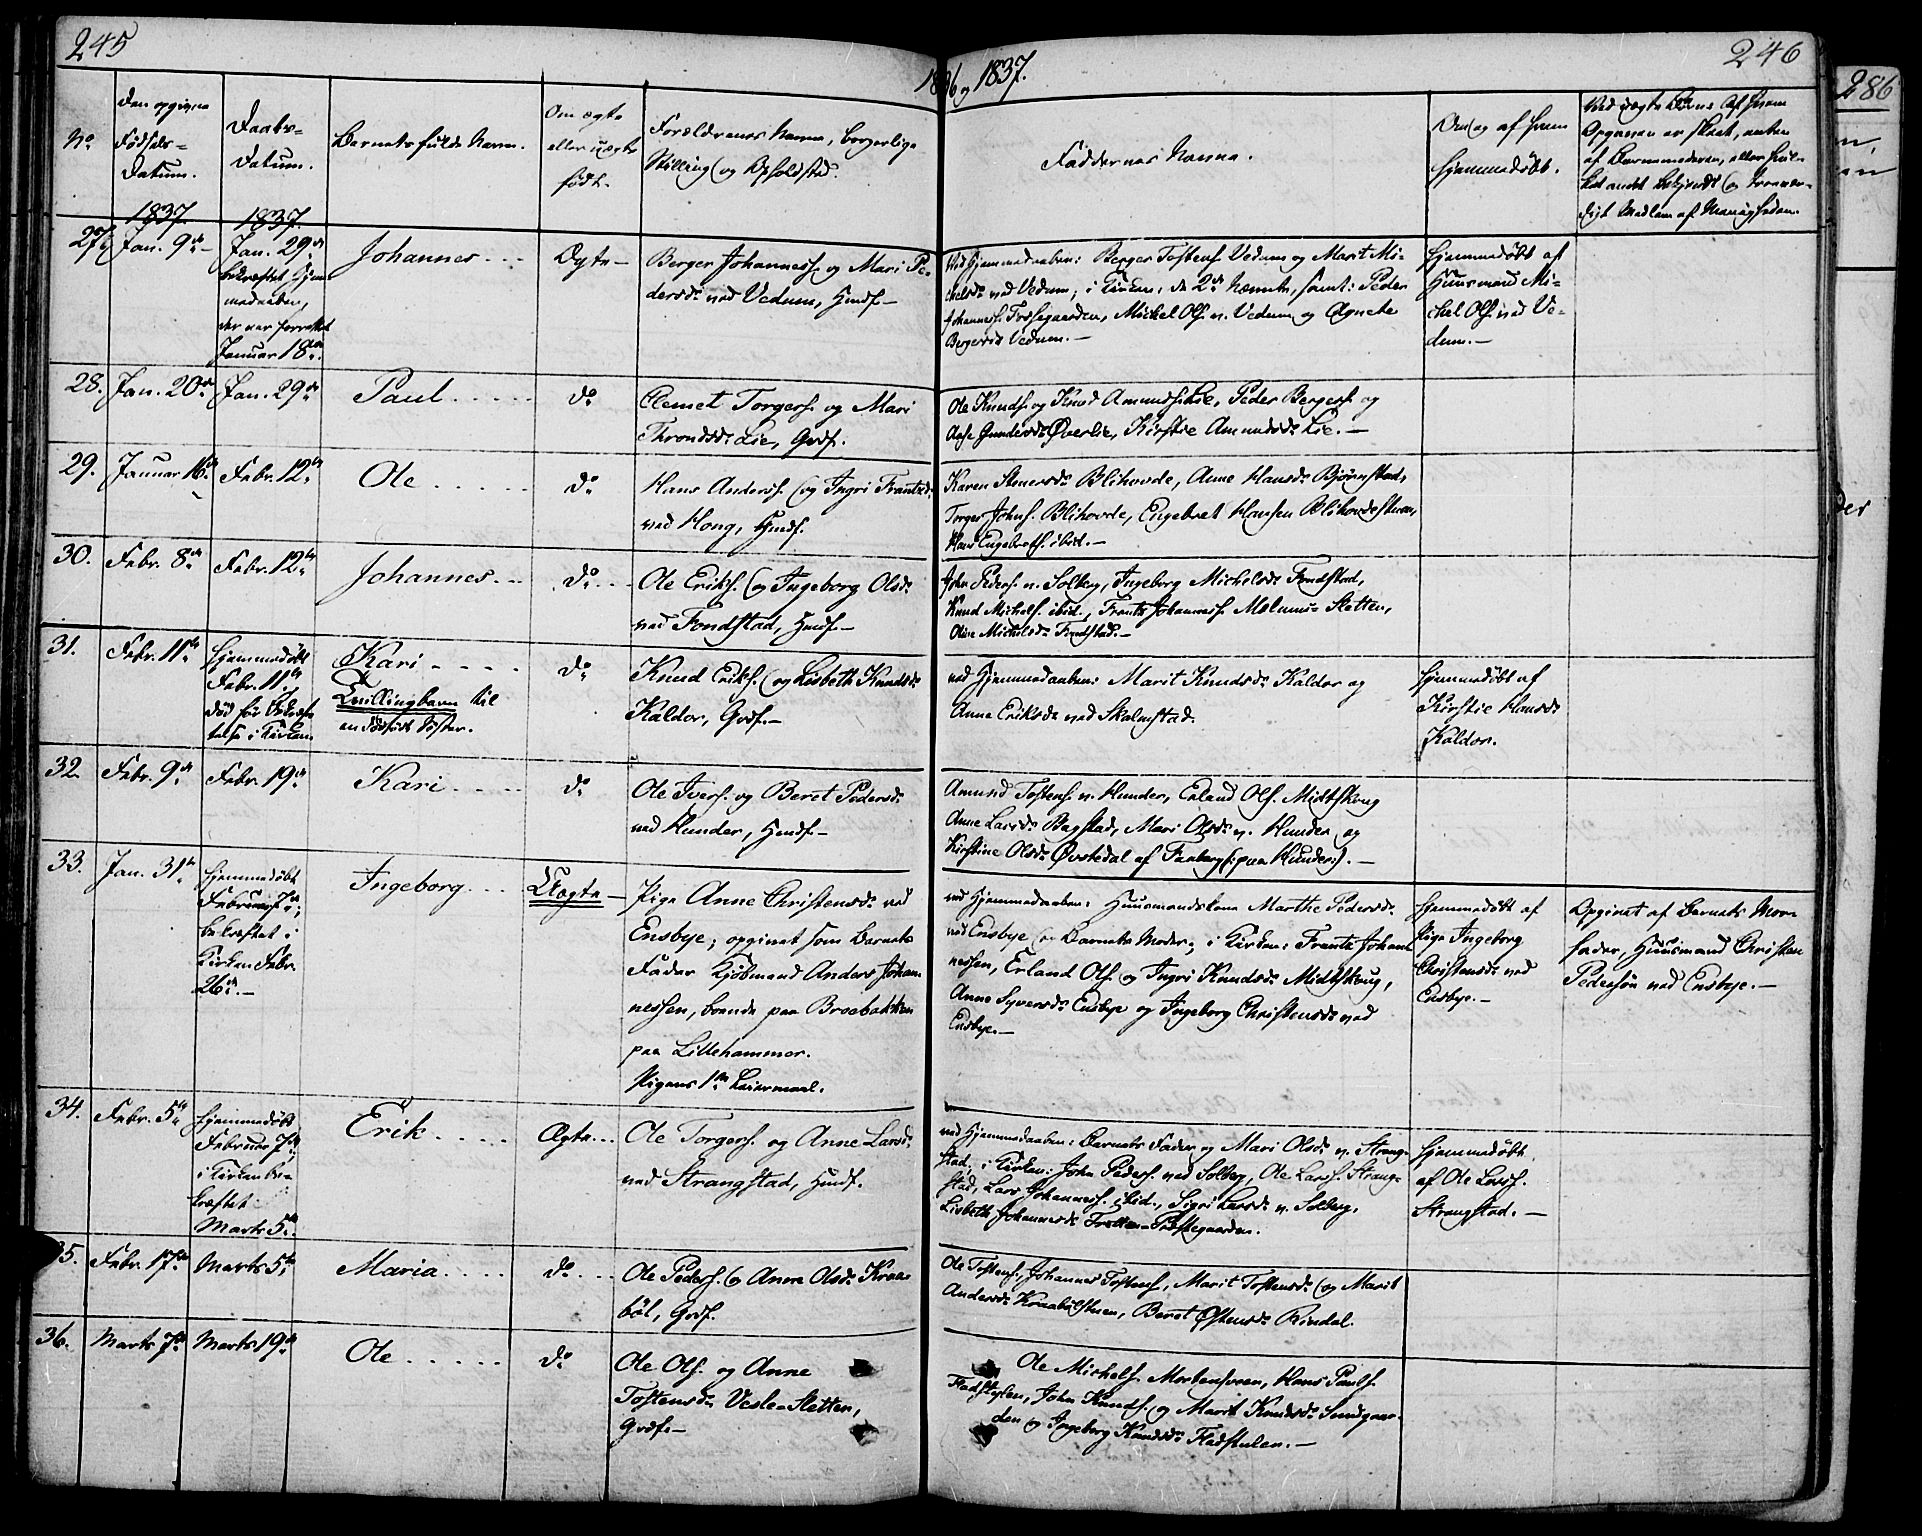 245
1836 og 1837.
246
286
No
Den opgivne Fødsels-Datum.
Daabs-Datum.
Barnets fulde Navn.
Om ægte eller uægte født.
Forældrenes Navne, borgerlige Stilling og Opholdsted.
Faddernes Navne.
Om og af hvem hjemmedøbt.
Ved uægte Børns Af hvem Opgaven er skeet, enten af Barnemoderen, eller hvilket andet bekjendt og troværdigt Medlem af Menigheden.
1837.
1837.
27.
Jan. 9de
Jan. 29de
bekræftet Hjem-
medaaben,
der var forrettet
Januar 18de
Johannes
Ægte
Berger Johanness. og Mari Pe-
dersdr. ved Vedum, Huusf.
Ved Hjemmedaaben: Berger Tostens. Vedum og Marit Mi-
chelsdr. ved Vedum; i Kirken: de 2de Nævnte, samt: Peder
Johanness. Forsegaarden, Mickel Ols. v. Vedum og Agnete
Bergersdr. Vedum.
Hjemmedøbt af
Huusmand Mi-
chel Ols. ved Ve-
dum.
28.
Jan. 20de
Jan. 29de
Paul
do
Clemet Torgers. og Mari
Throndsdr. Lie, Grdf.
Ole Knuds. og Knud Amunds. Lie, Peder Bergers. og
Aase Gundersdr. Øverlie, Kirstie Amundsdr. Lie.
29.
Januar 16de
Febr. 12te
Ole
do
Hans Anders. og Ingri Frantzdr.
ved Hong, Huusf.
Karen Stenersdr. Blihovde, Anne Hansdr. Bjørnstad,
Torger Johns. Blihovde, Engebret Hansen Blihovdestuen,
Hans Engebrets. ibid.
30.
Febr. 8de
Febr. 12te
Johannes
do
Ole Eriks. og Ingeborg Olsdr.
ved Fondstad, Huusf.
John Peders. v. Solberg, Ingeborg Michelsdr. Fondstad,
Knud Michels. ibid., Frantz Johanness. Melums-Sletten,
Oline Michelsdr. Fondstad.
31.
Febr. 11te
Hjemmedøbt
Febr. 11te
død før Bekræf-
telse i Kirken
Kari
Tvillingbarn til
en dødfødt Søster.
do
Knud Eriks. og Lisbeth Knudsdr.
Kaldor, Grdf.
ved Hjemmedaaben: Marit Knudsdr. Kaldor og
Anne Eriksdr. ved Skalmstad.
Hjemmedøbt af
Kirstie Hansdr.
Kaldor.
32.
Febr. 9de
Febr. 19de
Kari
do
Ole Ivers. og Beret Pedersdr.
ved Hunder, Huusf.
Amund Tostens. v. Hunder, Erland Ols. Midtskoug
Anne Larsdr. Bagstad, Mari Olsdr. v. Hunder og
Kirstine Olsdr. Øvstedal af Faaberg (: paa Hunder :).
33.
Jan. 31te
Hjemmedøbt
Februar 7de;
bekræftet i
Kirken Febr.
26de.
Ingeborg
Uægte
Pige Anne Christensdr. ved
Ensbye; opgivet som Barnets
Fader Kjøbmand Anders Johan-
nessen, boende paa Broebakken
paa Lillehammer.
Pigens 1ste Leiermaal.
ved Hjemmedaaben: Huusmandskone Marthe Pedersdr.
ved Ensbye og Barnets Moder; i Kirken: Frantz Johan-
nessen, Erland Ols. og Ingri Knudsdr. Midtskoug,
Anne Syversdr. Ensbye og Ingeborg Christensdr. ved
Ensbye.
Hjemmedøbt af
Pige Ingeborg
Christensdr. ved
Ensbye.
Opgivet af Barnets Mor-
fader, Huusmand Christen
Pedersøn ved Ensbye.
34.
Febr. 5te
Hjemmedøbt
Februar 7de
i Kirken be-
kræftet
Marts 5te
Erik
Ægte
Ole Torgers. og Anne Larsdr.
ved Strangstad, Huusf.
ved Hjemmedaaben: Barnets Fader og Mari Olsdr. v. Strang-
stad; i Kirken: John Peders. ved Solberg, Ole Larss. Strang-
stad, Lars Johanness. ibid., Sigri Larsdr. v. Solberg,
Lisbeth Johannesdr. Fretten-Præstegaarden.
Hjemmedøbt
af Ole Larss.
Strangstad.
35.
Febr. 17de
Marts 5te
Maria
do
Ole Peders. og Anne Olsdr. Kraa-
bøl, Grdf.
Ole Tostens., Johannes Tostens., Marit Tostensdr. og Marit
Andersdr. Kraabølstuen, Beret Østensdr. Rindal.
36.
Marts 7de
Marts 19de
Ole
do
Ole Ols. og Anne
Tostensdr. Vesle-Sletten,
Grdf.
Ole Michels. Mortensveen, Hans Pauls.
Fladstylen, John Knuds. og Marit Knudsdr. Sundgaar-
den og Ingeborg Knudsdr. Fladstulen.